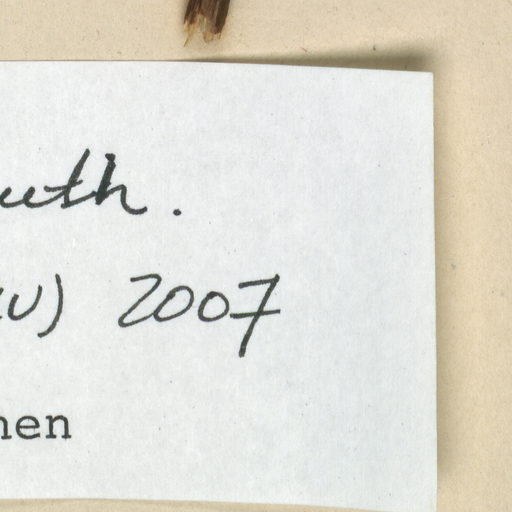 uth.
U) 2007
nen